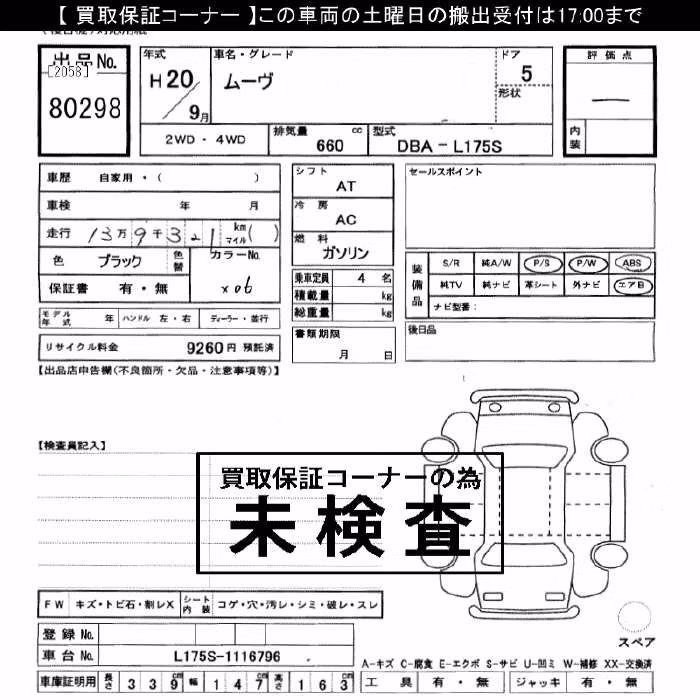 【 買取保証コーナー 】この車両の土曜日の搬出受付は17:00まで
出品No.
[2058]
80298
年式
H20
9月
車名・グレード
ムーヴ
ドア
5
形状
評価点
—
内装
2WD ・ 4WD
排気量 cc
660
型式
DBA - L175S
車歴 自家用・( )
車検 年 月
走行 13万9千321 km マイル( )
色 ブラック 色替
カラーNo.
x06
保証書 有・無
シフト
AT
冷房
AC
燃料
ガソリン
乗車定員 4 名
積載量 kg
総重量 kg
書類期限
月 日
セールスポイント
装備品
S/R 純A/W P/S P/W ABS
純TV 純ナビ 革シート 外ナビ エアB
ナビ型番:
後日品
モデル年式 年 ハンドル 左・右 ディーラー・並行
リサイクル料金 9260円 預託済
【出品店申告欄(不良箇所・欠品・注意事項等)】
【検査員記入】
買取保証コーナーの為
未検査
FW キズ・トビ石・割レX シート内装 コゲ・穴・汚レ・シミ・破レ・スレ
登録 No.
車台 No. L175S-1116796
車庫証明用 長さ 339cm 幅 147cm 高さ 163cm
スペア
A-キズ C-腐食 E-エクボ S-サビ U-凹ミ W-補修 XX-交換済
工具 有・無 ジャッキ 有・無